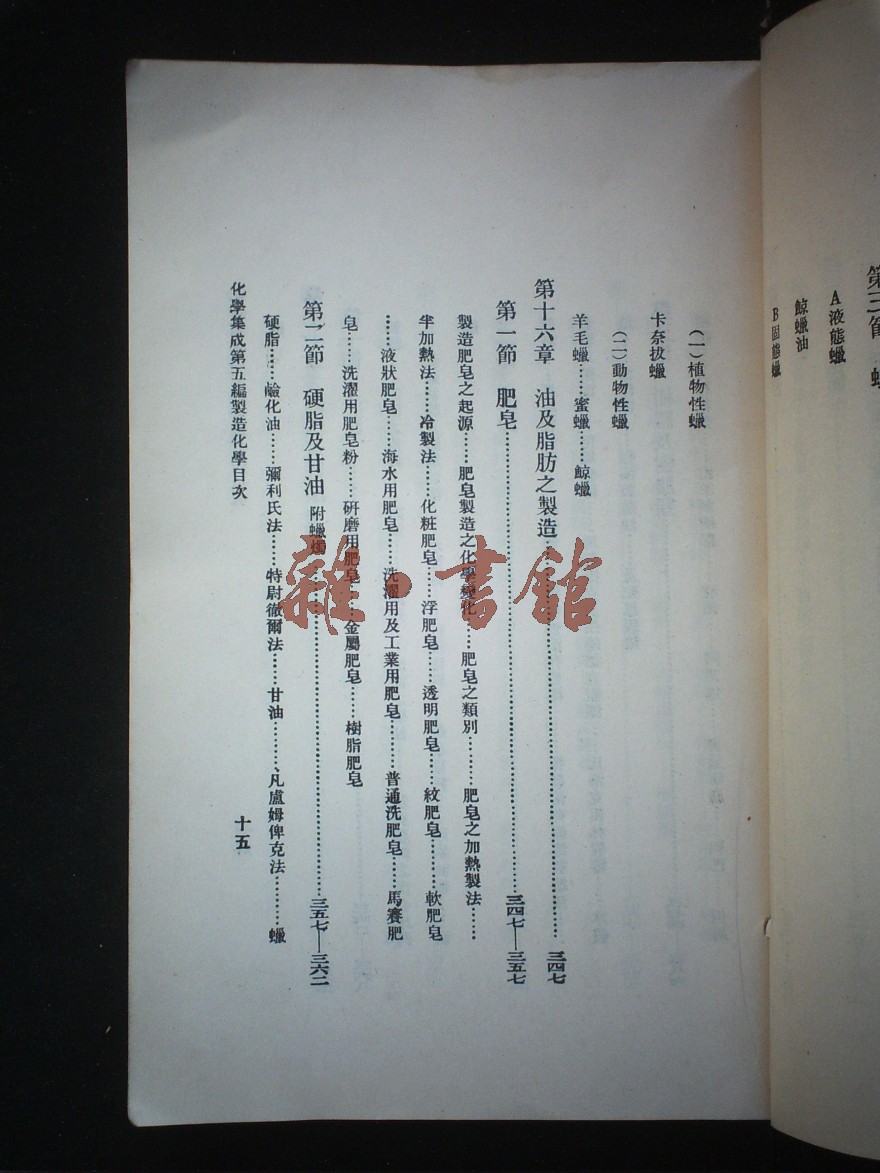 第三節　蠟
A液態蠟
鯨蠟油
B固態蠟
（一）植物性蠟
卡奈拔蠟
（二）動物性蠟
羊毛蠟……蜜蠟……鯨蠟
第十六章　油及脂肪之製造……三四七
第一節　肥皂……三四七—三五七
製造肥皂之起源……肥皂製造之化學變化……肥皂之類別……肥皂之加熱製法……
半加熱法……冷製法……化粧肥皂……浮肥皂……透明肥皂……紋肥皂……軟肥皂
……液狀肥皂……海水用肥皂……洗濯用及工業用肥皂……普通洗肥皂……馬賽肥
皂……洗濯用肥皂粉……研磨用肥皂……金屬肥皂……樹脂肥皂
第二節　硬脂及甘油　附蠟燭……三五七—三六二
硬脂……鹼化油……彌利氏法……特尉徹爾法……甘油……、凡盧姆俾克法……蠟
化學集成第五編製造化學目次
十五
雜·書館